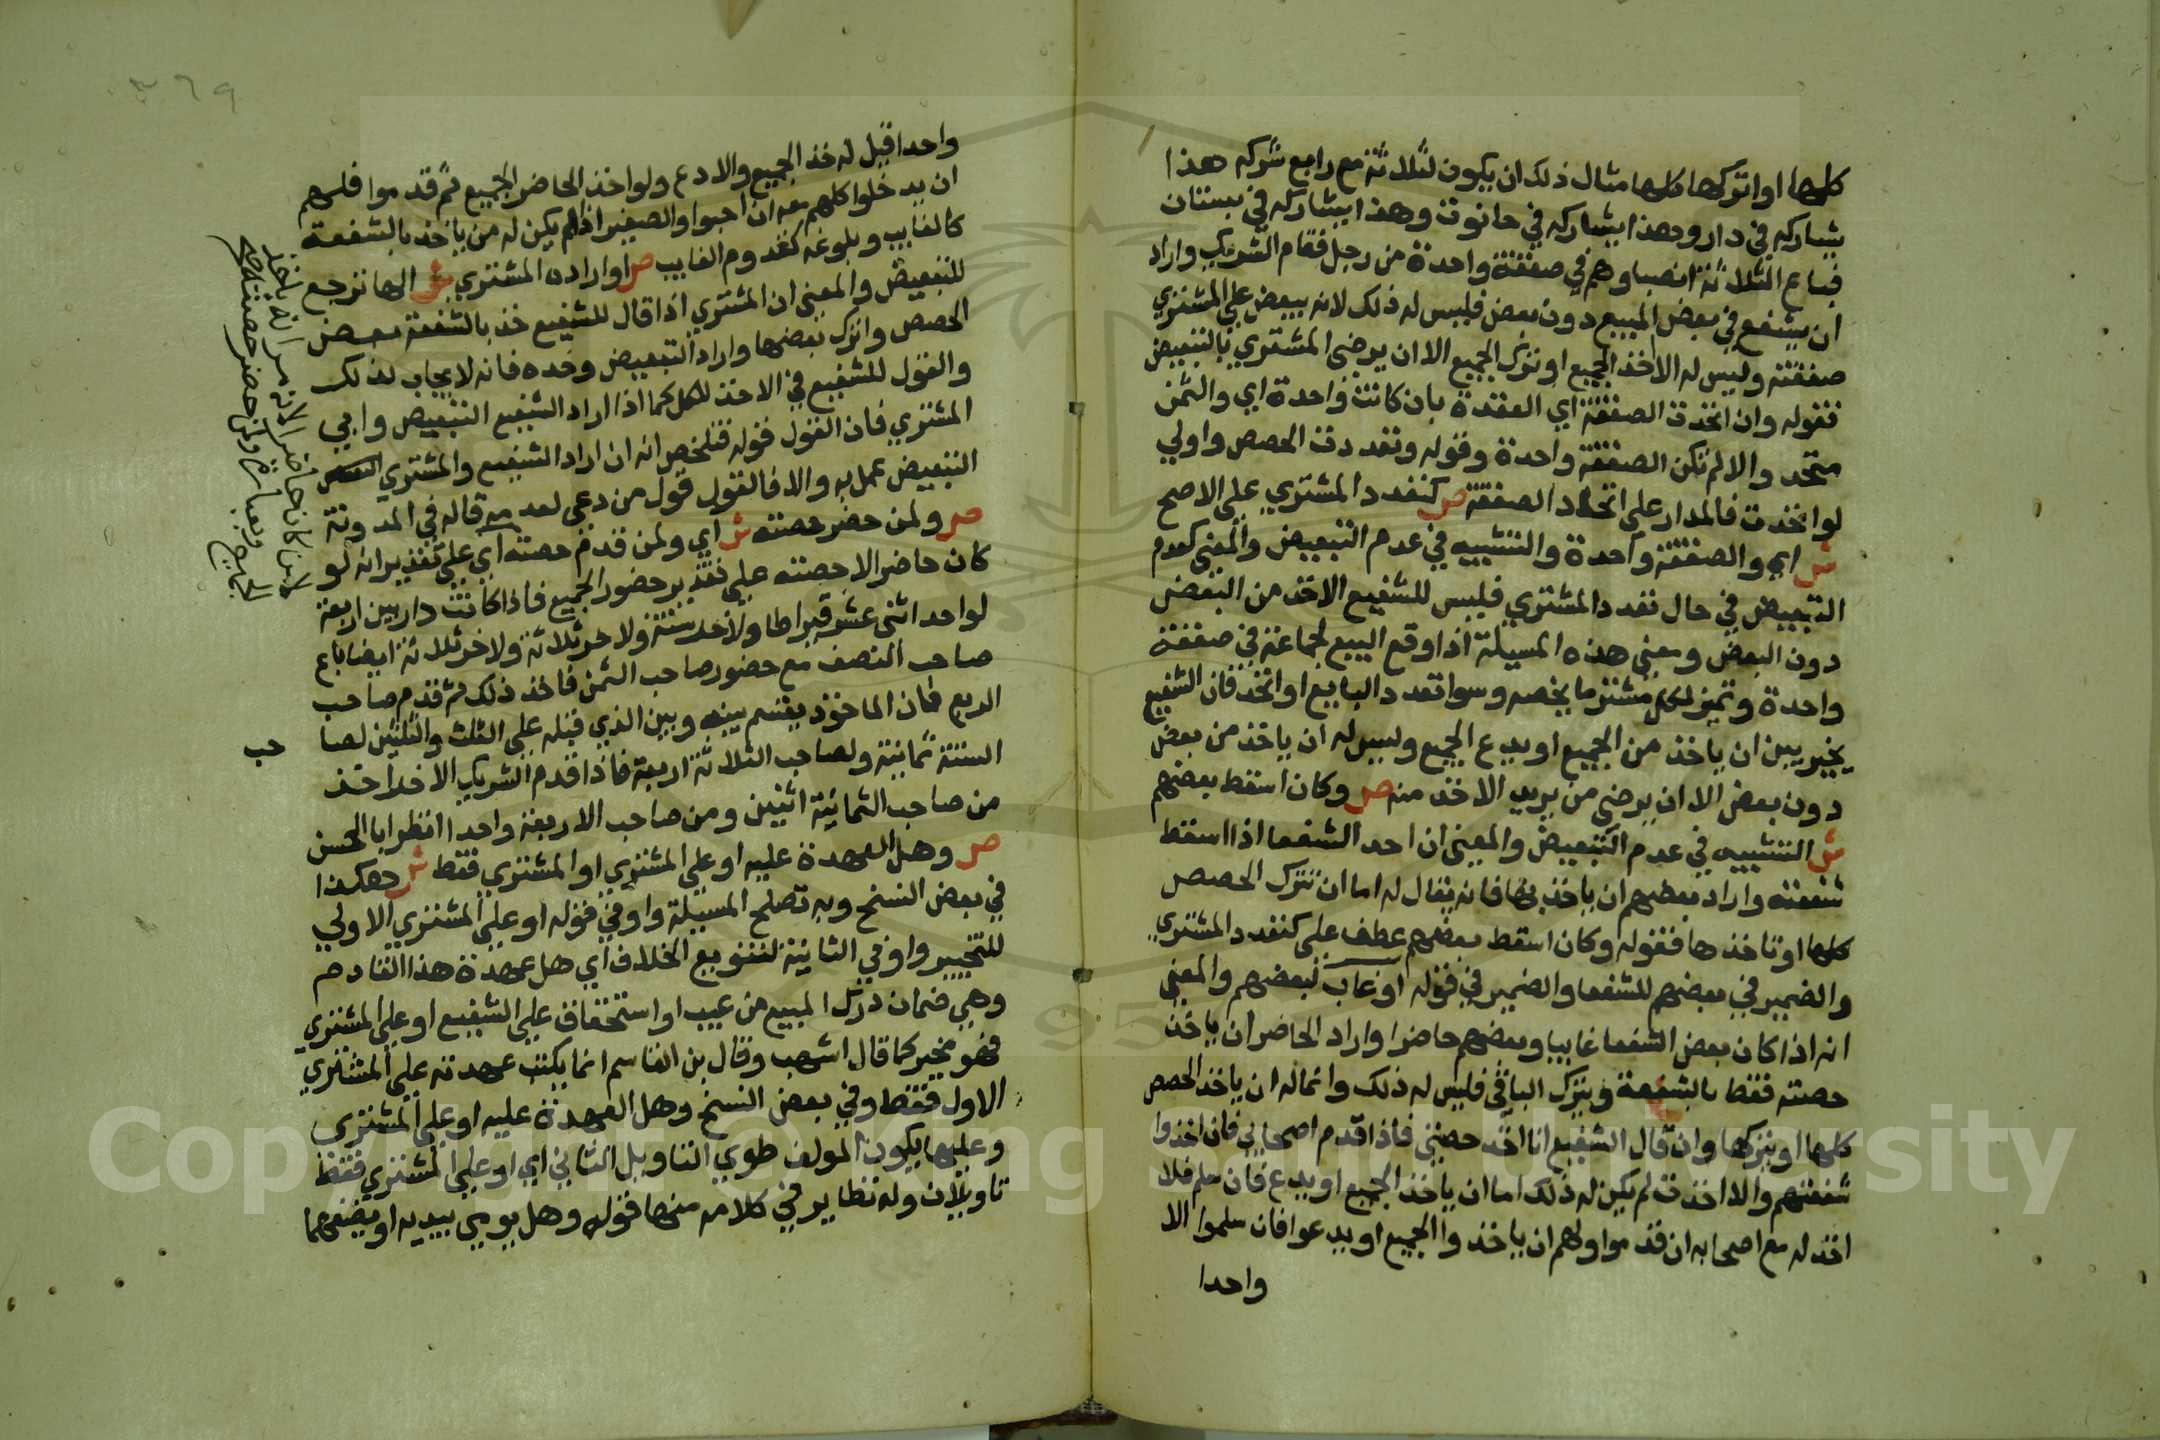 كلها او اتركها كلها مثال ذلك ان يكون لثلاثة مع رابع شركه هذا
يشاركه في دار وهذا يشاركه في حانوت وهذا يشاركه في بستان
فباع الثلاثة انصباوهم في صفقة واحدة من رجل فقام الشريك واراد
ان يشفع في بعض المبيع دون بعض فليس له ذلك لانه يبعض على المشتري
صفقته وليس له الا اخذ الجميع او ترك الجميع الا ان يرضى المشتري بالتبعيض
فقوله وان اتحدت الصفقة اي العقدة بان كانت واحدة اي والثمن
متحد والا لم تكن الصفقة واحدة وقوله وتعددت الحصص واولي
لو اتحدت فالمدار على اتحاد الصفقة ص كتعدد المشتري على الاصح
ش اي والصفقة واحدة والتشبيه في عدم التبعيض والمعنى كعدم
التبعيض في حال تعدد المشتري فليس للشفيع الاخذ من البعض
دون البعض ومعنى هذه المسيلة اذا وقع البيع لجماعة في صفقة
واحدة وتميز لكل مشتر ما يخصه وسوا تعدد البايع او اتحد فان الشفيع
يخير بين ان ياخذ من الجميع او يدع الجميع وليس له ان ياخذ من بعض
دون بعض الا ان يرضى من يريد الاخذ منه ص وكان اسقط بعضهم
ش التشبيه في عدم التبعيض والمعنى ان احد الشفعا اذا اسقط
شفعته واراد بعضهم ان ياخذ بها فانه يقال له اما ان تترك الحصص
كلها او تاخذها فقوله وكان اسقط بعضهم عطف على كتعدد المشتري
والضمير في بعضهم للشفعا والضمير في قوله او غاب لبعضهم والمعنى
انه اذا كان بعض الشفعا غايبا وبعضهم حاضرا واراد الحاضر ان ياخذ
حصته فقط بالشفعة ويترك الباقي فليس له ذلك وانما له ان ياخذ الحصص
كلها او يتركها وان قال الشفيع انا اخذ حصتي فاذا قدم اصحابي فان اخذوا
شفعتهم والا اخذت لم يكن له ذلك اما ان ياخذ الجميع او يدع فان سلم فلا
اخذ له مع اصحابه ان قدموا ولهم ان ياخذوا الجميع او يدعوا فان سلموا الا
واحدا
٣٦٩
واحدا قيل له خذ الجميع والا دع ولو اخذ الحاضر الجميع ثم قدموا فلهم
ان يدخلوا كلهم معه ان احبوا والصغير اذا لم يكن له من ياخذ بالشفعة
كالغايب وبلوغه كقدوم الغايب ص او اراده المشتري ش الها ترجع
للتبعيض والمعنى ان المشتري اذا قال للشفيع خذ بالشفعة بعض
الحصص واترك بعضها واراد التبعيض وحده فانه لا يجاب لذلك
والقول للشفيع في الاخذ للكل كما اذا اراد الشفيع التبعيض وابي
المشتري فان القول قوله فتلخص انه ان اراد الشفيع والمشتري
التبعيض عمل به والا فالقول قول من دعى لعدمه قاله في المدونة
ص ولمن حضر حصته ش اي ولمن قدم حصته اي على تقدير انه لو
كان حاضرا لا حصته على تقدير حضور الجميع فاذا كانت دار بين اربعة
لواحد اثنى عشر قيراطا ولاخر ستة ولاخر ثلاثة ولاخر ثلاثة ايضا باع
صاحب النصف مع حضور صاحب الثمن فاخذ ذلك ثم قدم صاحب
الربع فان الماخوذ يقسم بينه وبين الذي قبله على الثلث والثلثين لصا
حب
الستة ثمانية ولصاحب الثلاثة اربعة فاذا قدم الشريك الاخر اخذ
من صاحب الثمانية اثنين ومن صاحب الاربعة واحدا انظر ابا الحسن
ص وهل العهدة عليه او على المشتري او المشتري فقط ش هكذا
في بعض النسخ وبه تصلح المسيلة واو في قوله او على المشتري الاولي
للتخيير واو في الثانية لتنويع الخلاف اي هل عهدة هذا القادم
وهي ضمان درك المبيع من عيب او استحقاق على الشفيع او على المشتري
فهو مخير كما قال اشهب وقال بن القاسم انما يكتب عهدته على المشتري
الاول فقط وفي بعض النسخ وهل العهدة عليه او على المشتري
وعليها يكون المولف طوي التاويل الثاني اي او على المشتري فقط
تاويلان وله نظاير في كلامه منها قوله وهل يومي بيديه او يضعهما